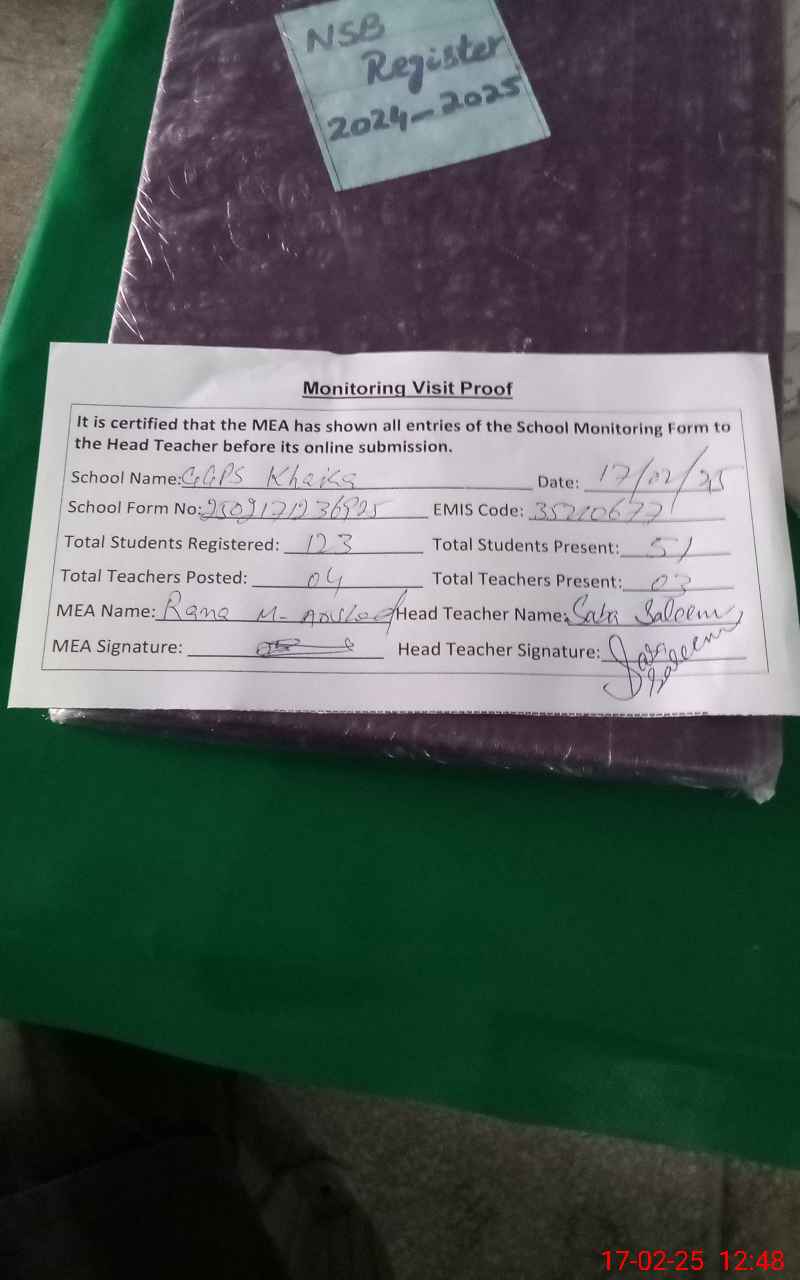 NSB
Register
2024-2025
Monitoring Visit Proof
It is certified that the MEA has shown all entries of the School Monitoring Form to
the Head Teacher before its online submission.
School Name: GGPS Khaika Date: 17/02/25
School Form No: 2502171236925 EMIS Code: 35210677
Total Students Registered: 123 Total Students Present: 51
Total Teachers Posted: 04 Total Teachers Present: 03
MEA Name: Rana M. Head Teacher Name: Saba Saleem
MEA Signature: Head Teacher Signature: Saba Saleem
17-02-25 12:48